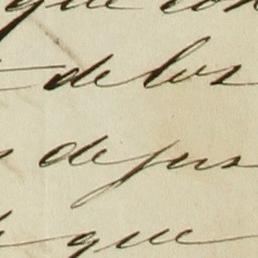 que con
de los
de sus
que